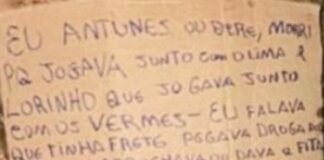 EU ANTUNES OU DERE, MORRI
PQ JOGAVA JUNTO COM O LIMA E
LORINHO QUE JOGAVA JUNTO
COM OS VERMES - EU FALAVA
QUE TINHA FRETE PEGAVA DROGA
DAVA A FITA